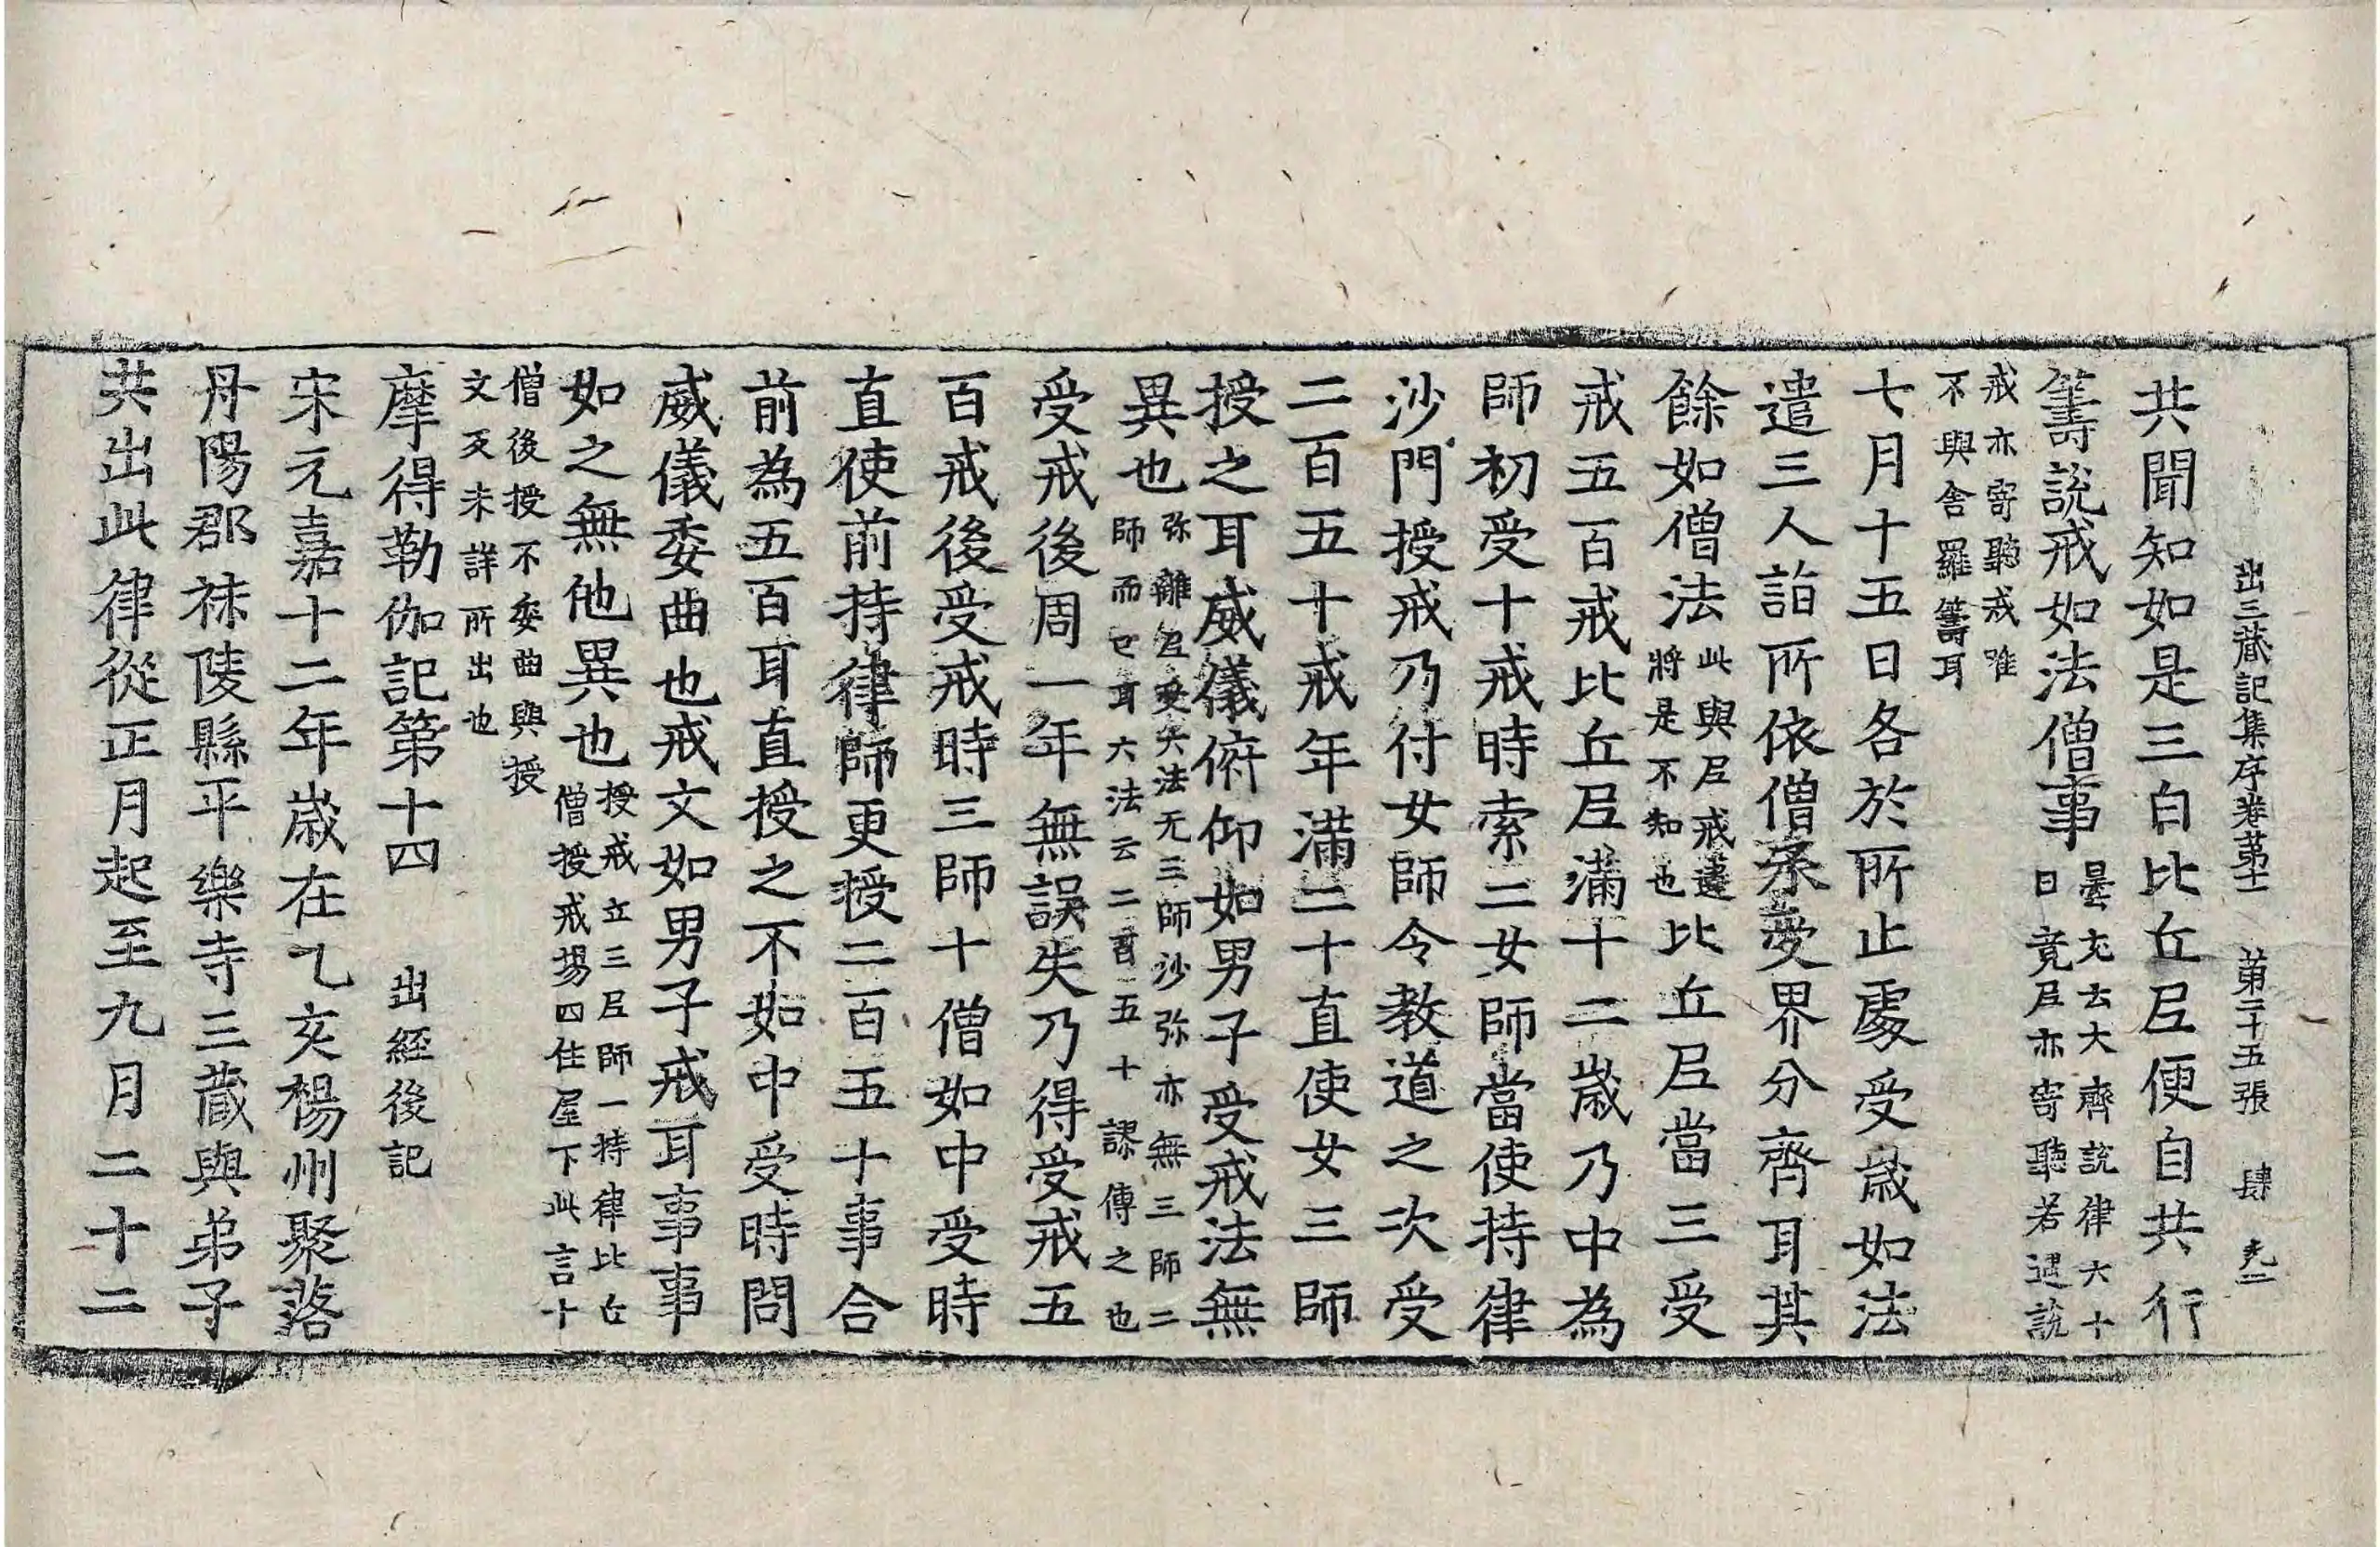 出三蔵記集序卷苐十一　苐二十五張　肆
共聞知如是三白比丘尼便自共行
籌說戒如法僧事曇充云大齊說律六十
日竟尼亦寄聽若遇說
戒亦寄聽戒唯
不與舍羅籌耳
七月十五日各於所止處受歳如法
遣三人詣所依僧承受界分齊耳其
餘如僧法此與尼戒違
將是不知也比丘尼當三受
戒五百戒比丘尼滿十二歳乃中為
師初受十戒時索二女師當使持律
沙門授戒乃付女師令教道之次受
二百五十戒年滿二十直使女三師
授之耳威儀俯仰如男子受戒法無
異也弥離尼受六法无三師沙弥亦無三師二
師而已耳六法云二百五十謬傳之也
受戒後周一年無誤失乃得受戒五
百戒後受戒時三師十僧如中受時
直使前持律師更授二百五十事合
前為五百耳直授之不如中受時問
威儀委曲也戒文如男子戒耳事事
如之無他異也授戒立三尼師一持律比丘
僧授戒場四住屋下此言十
僧後授不委曲與授
文反未詳所出也
摩得勒伽記第十四　出經後記
宋元嘉十二年歳在乙亥楊州聚落
丹陽郡秣陵縣平樂寺三藏與弟子
共出此律從正月起至九月二十二